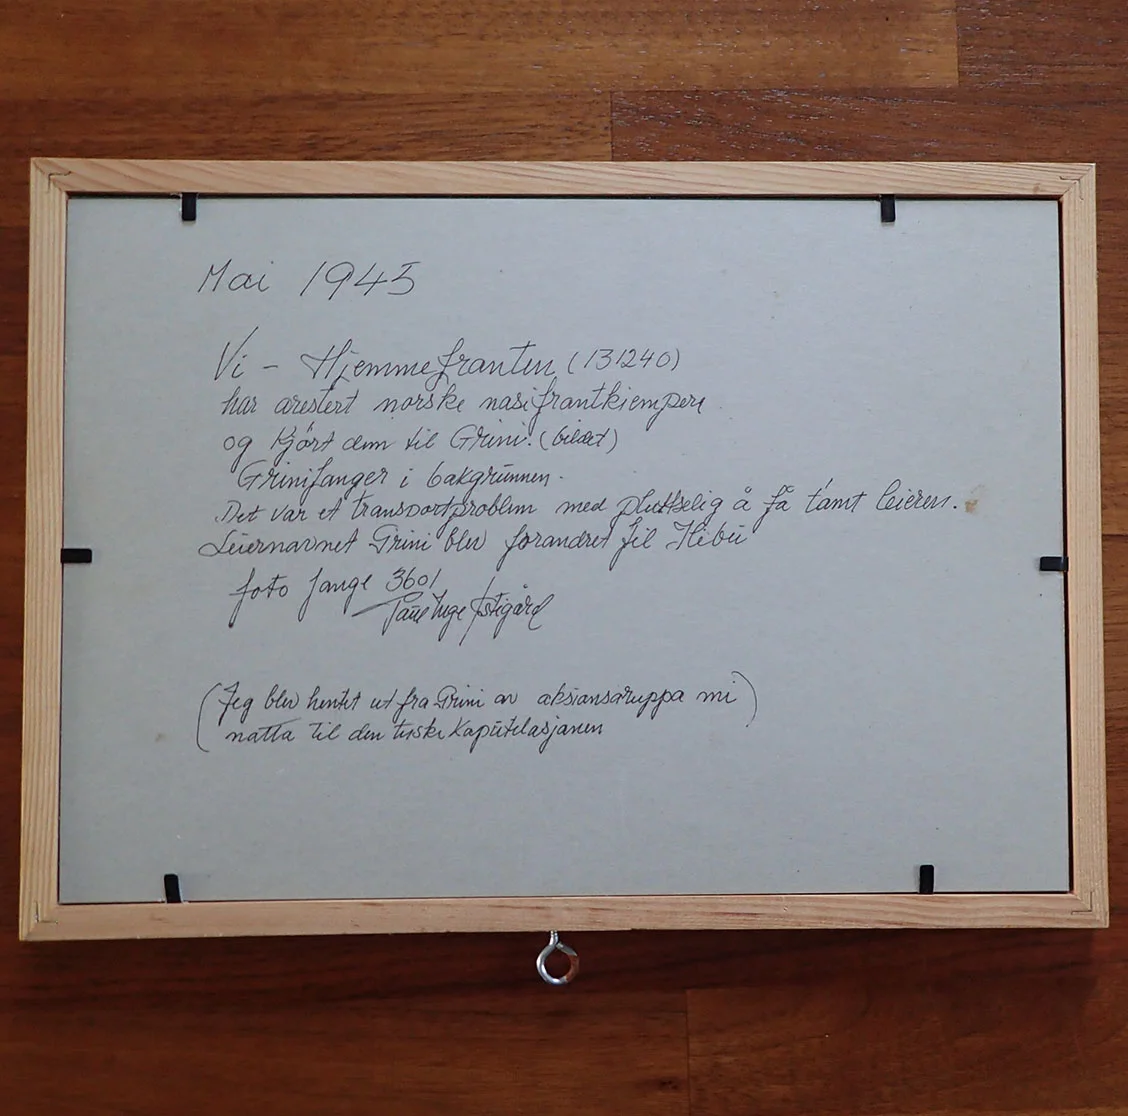 Mai 1945
Vi - Hjemmefronten (131240)
har arestert norske nasifrontkjempere
og kjørt dem til Grini. (bildet)
Grinifanger i bakgrunnen.
Det var et transportproblem med pluttselig å få tømt leieren.
Leiernavnet Grini blev forandret til Ilebu
foto fange 3601
(Jeg blev hentet ut fra Grini av aksionsgruppa mi)
natta til den tyske kapitulasjonen